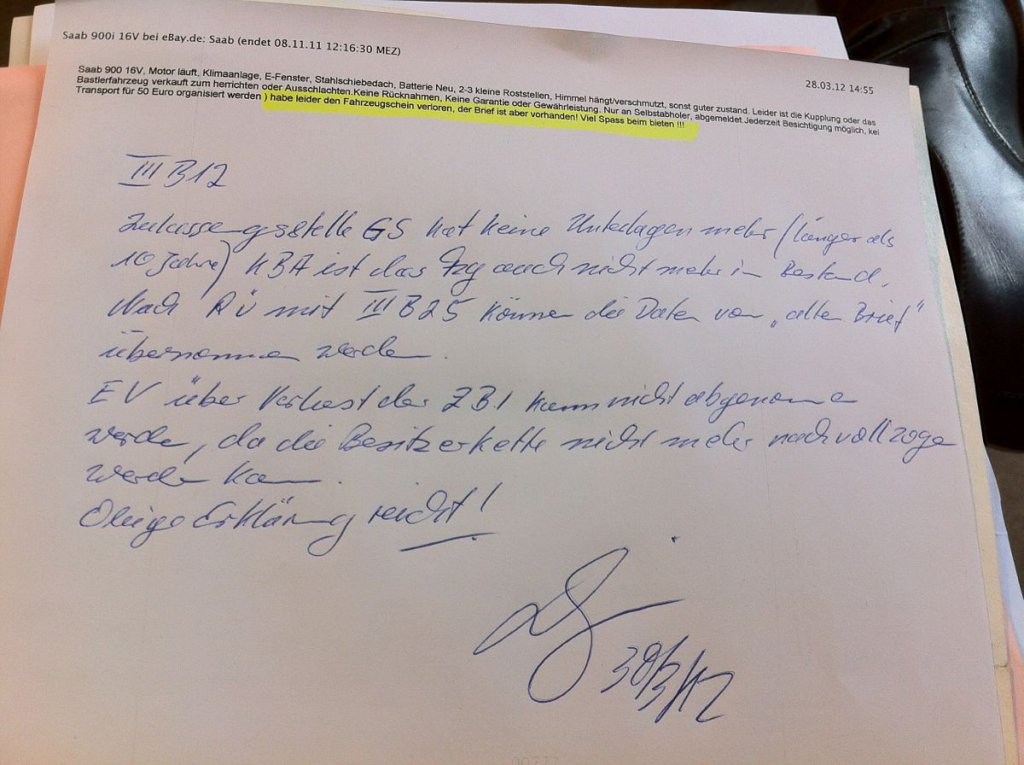 Saab 900i 16V bei eBay.de: Saab (endet 08.11.11 12:16:30 MEZ)
28.03.12 14:55
Saab 900 16V, Motor läuft, Klimaanlage, E-Fenster, Stahlschiebedach, Batterie Neu, 2-3 kleine Roststellen, Himmel hängt/verschmutzt, sonst guter zustand. Leider ist die Kupplung oder das
Bastlerfahrzeug verkauft zum herrichten oder Ausschlachten.Keine Rücknahmen, Keine Garantie oder Gewährleistung. Nur an Selbstabholer, abgemeldet.Jederzeit Besichtigung möglich, kei
Transport für 50 Euro organisiert werden ) habe leider den Fahrzeugschein verloren, der Brief ist aber vorhanden! Viel Spass beim bieten !!!
III B12
Zulassungsstelle GS hat keine Unterlagen mehr (länger als
10 Jahre) KBA ist das Fzg auch nicht mehr im Bestand.
Nach RÜ mit III B25 können die Daten vom „alten Brief"
übernommen werden.
EV über Verlust der ZB1 kann nicht abgenomme
werden, da die Besitzerkette nicht mehr nachvollzoge
werden kann.
Obige Erklärung reicht!
30/3/12